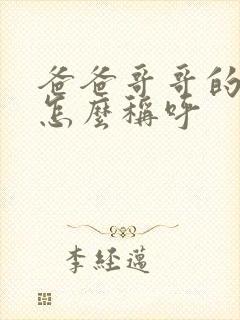 爸爸哥哥的
怎麼稱呼
李經邁